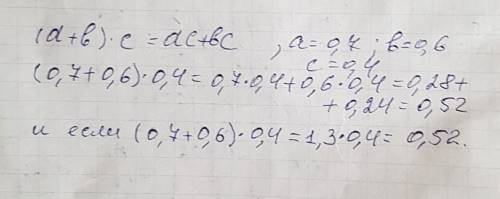 (a+b)·c = ac+bc , a=0,7; b=0,6
c=0,4
(0,7+0,6)·0,4=0,7·0,4+0,6·0,4=0,28+
+0,24=0,52
и если (0,7+0,6)·0,4=1,3·0,4= 0,52.